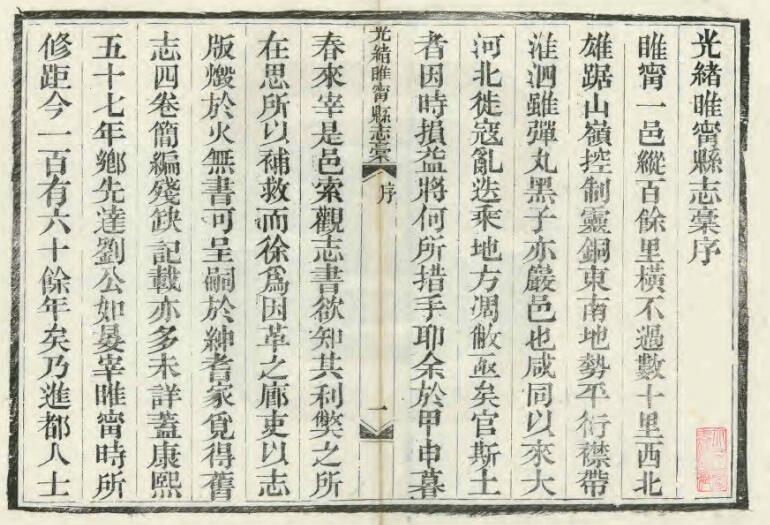 光緒睢甯縣志稾序
睢甯一邑縱百餘里橫不過數十里西北
雄踞山嶺控制靈銅東南地勢平衍襟帶
淮泗雖彈丸黑子亦嚴邑也咸同以來大
河北徙寇亂迭乘地方凋敝亟矣官斯土
者因時損益將何所措手耶余於甲申暮
光緒睢甯縣志稾
序
一
春來宰是邑索觀志書欲知其利獘之所
在思所以補救而徐爲因革之廊吏以志
版燬於火無書可呈嗣於紳耆家覓得舊
志四卷簡編殘缺記載亦多未詳蓋康熙
五十七年鄉先達劉公如晏宰睢甯時所
修距今一百有六十餘年矣乃進都人士